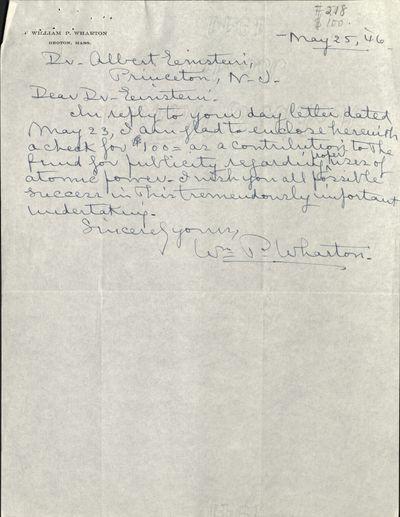 #218
$100.
WILLIAM P. WHARTON
GROTON, MASS.
- May 25, '46
Dr. Albert Einstein,
Princeton, N. J.
Dear Dr. Einstein:
In reply to your day letter dated
May 23, I am glad to enclose herewith
a check for $100= as a contribution to the
fund for publicity regarding proper uses of
atomic power. I wish you all possible
success in this tremendously important
undertaking.
Sincerely yours,
Wm. P. Wharton.